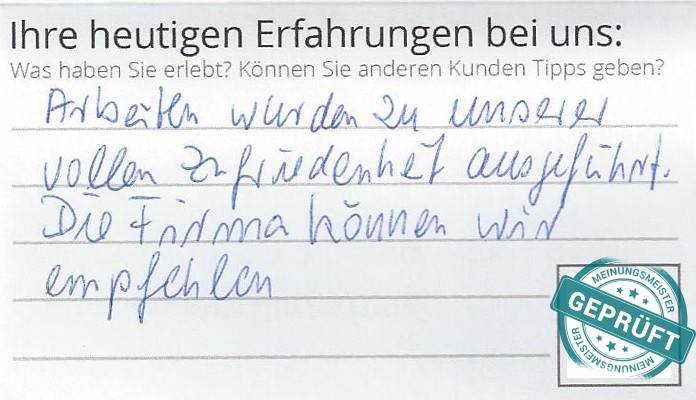 Ihre heutigen Erfahrungen bei uns:
Was haben Sie erlebt? Können Sie anderen Kunden Tipps geben?
Arbeiten wurden zu unserer
vollen Zufriedenheit ausgeführt.
Die Firma können wir
empfehlen
MEINUNGSMEISTER
GEPRÜFT
MEINUNGSMEISTER